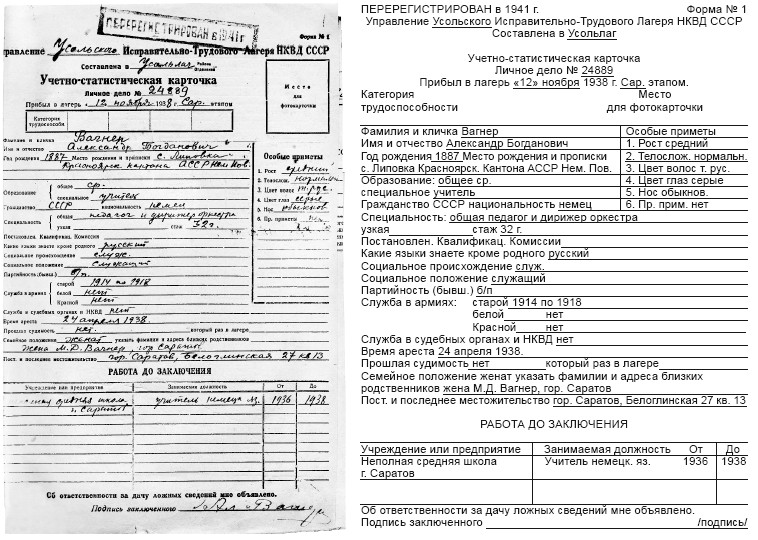 ПЕРЕРЕГИСТРИРОВАН в 1941 г
Форма № 1
Управление Усольского Исправительно-Трудового Лагеря НКВД СССР
Составлена в Усольлаг
Района
Отделения
Учетно-статистическая карточка
Личное дело № 24889
Прибыл в лагерь „12 ноября 1938 г. Сар. этапом
Категория
трудоспособн.
Место
для
фотокарточки
Фамилия и кличка Вагнер
Имя и отчество Александр Богданович
Год рождения 1887 Место рождения и прописки с. Липовка
Красноярск. кантона АССР Нем. Пов.
Образование: общее ср.
специальное учитель
Гражданство СССР национальность немец
Специальность: общая педагог и дирижер оркестра
узкая стаж 32 г.
Особые приметы
1. Рост средний
2. Телослож. нормальн.
3. Цвет волос т. рус.
4. Цвет глаз серые
5. Нос обыкнов.
6. Пр. приметы нет
Постановлен. Квалификац. Комиссии
Какие языки знаете кроме родного русский
Социальное происхождение служ.
Социальное положение служащий
Партийность (бывш.) б/п.
Служба в армиях: старой 1914 по 1918
белой нет
Красной нет
Служба в судебных органах и НКВД нет
Время ареста 24 апреля 1938.
Прошлая судимость нет. который раз в лагере
Семейное положение женат указать фамилии и адреса близких родственников
жена М.Д. Вагнер, гор. Саратов
Пост. и последнее местожительство гор. Саратов, Белоглинская 27 кв 13
РАБОТА ДО ЗАКЛЮЧЕНИЯ
Учреждение или предприятие Занимаемая должность От До
средняя школа учитель немецк. яз. 1936 1938
г. Саратов
Об ответственности за дачу ложных сведений мне объявлено.
Подпись заключенного Вагнер
ПЕРЕРЕГИСТРИРОВАН в 1941 г. Форма № 1
Управление Усольского Исправительно-Трудового Лагеря НКВД СССР
Составлена в Усольлаг
Учетно-статистическая карточка
Личное дело № 24889
Прибыл в лагерь «12» ноября 1938 г. Сар. этапом.
Категория Место
трудоспособности для фотокарточки
Фамилия и кличка Вагнер Особые приметы
Имя и отчество Александр Богданович 1. Рост средний
Год рождения 1887 Место рождения и прописки 2. Телослож. нормальн.
с. Липовка Красноярск. Кантона АССР Нем. Пов. 3. Цвет волос т. рус.
Образование: общее ср. 4. Цвет глаз серые
специальное учитель 5. Нос обыкнов.
Гражданство СССР национальность немец 6. Пр. прим. нет
Специальность: общая педагог и дирижер оркестра
узкая стаж 32 г.
Постановлен. Квалификац. Комиссии
Какие языки знаете кроме родного русский
Социальное происхождение служ.
Социальное положение служащий
Партийность (бывш.) б/п
Служба в армиях: старой 1914 по 1918
белой нет
Красной нет
Служба в судебных органах и НКВД нет
Время ареста 24 апреля 1938.
Прошлая судимость нет который раз в лагере
Семейное положение женат указать фамилии и адреса близких
родственников жена М.Д. Вагнер, гор. Саратов
Пост. и последнее местожительство гор. Саратов, Белоглинская 27 кв. 13
РАБОТА ДО ЗАКЛЮЧЕНИЯ
Учреждение или предприятие Занимаемая должность От До
Неполная средняя школа Учитель немецк. яз. 1936 1938
г. Саратов
Об ответственности за дачу ложных сведений мне объявлено.
Подпись заключенного /подпись/